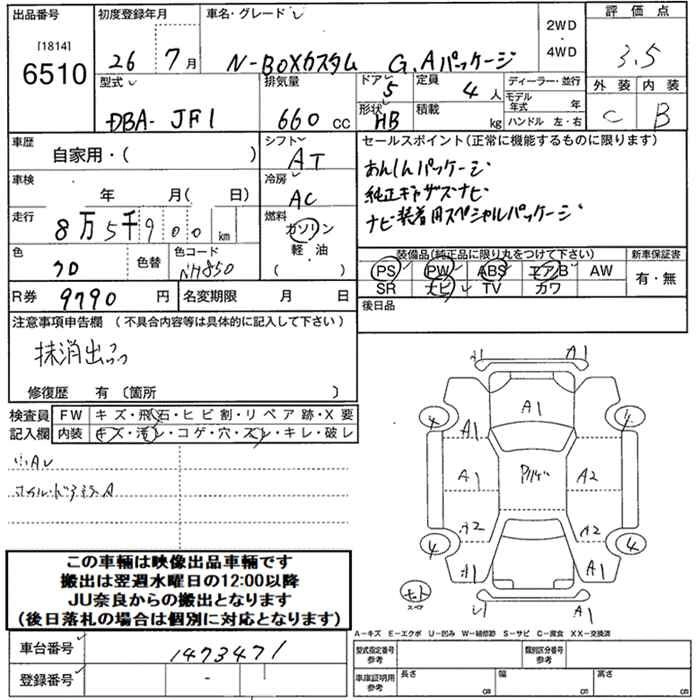 出品番号 初度登録年月 車名・グレード 評価点
[1814]
6510
26 7月 N-BOXカスタム G.Aパッケージ
2WD
・
4WD
3.5
型式 排気量 ドア 5 定員 4人 ディーラー・並行 外装 内装
DBA- JF1 660cc 形状 HB 積載 kg モデル年式 年 C B
ハンドル 左・右
車歴 シフト セールスポイント(正常に機能するものに限ります)
自家用・( ) AT
あんしんパッケージ
車検 冷房
年 月( 日) AC
純正ギャザズナビ
走行 燃料
8万5千900km ガソリン
ナビ装着用スペシャルパッケージ
軽・油
( )
色 色替 色コード
クロ NH850
装備品(純正品に限り丸をつけて下さい) 新車保証書
PS PW ABS エアB AW 有・無
SR ナビ TV カワ
R券 9790円 名変期限 月 日
後日品
注意事項申告欄 (不具合内容等は具体的に記入して下さい)
修復歴 有 〔箇所 〕
検査員 FW キズ・飛石・ヒビ割・リペア跡・X要
記入欄 内装 キズ・汚レ・コゲ・穴・スレ・キレ・破レ
A1
A1
A1 A1
A1 A2
A2 A2
A1
A1
4 4 4
スペア
この車輛は映像出品車輛です
搬出は翌週水曜日の12:00以降
JU奈良からの搬出となります
(後日落札の場合は個別に対応となります)
A-キズ E-エクボ U-凹み W-補修跡 S-サビ C-腐食 XX-交換済
車台番号 1473471
型式指定番号 参考 類別区分番号 参考
登録番号 -
車庫証明用 参考 長さ cm 幅 cm 高さ cm